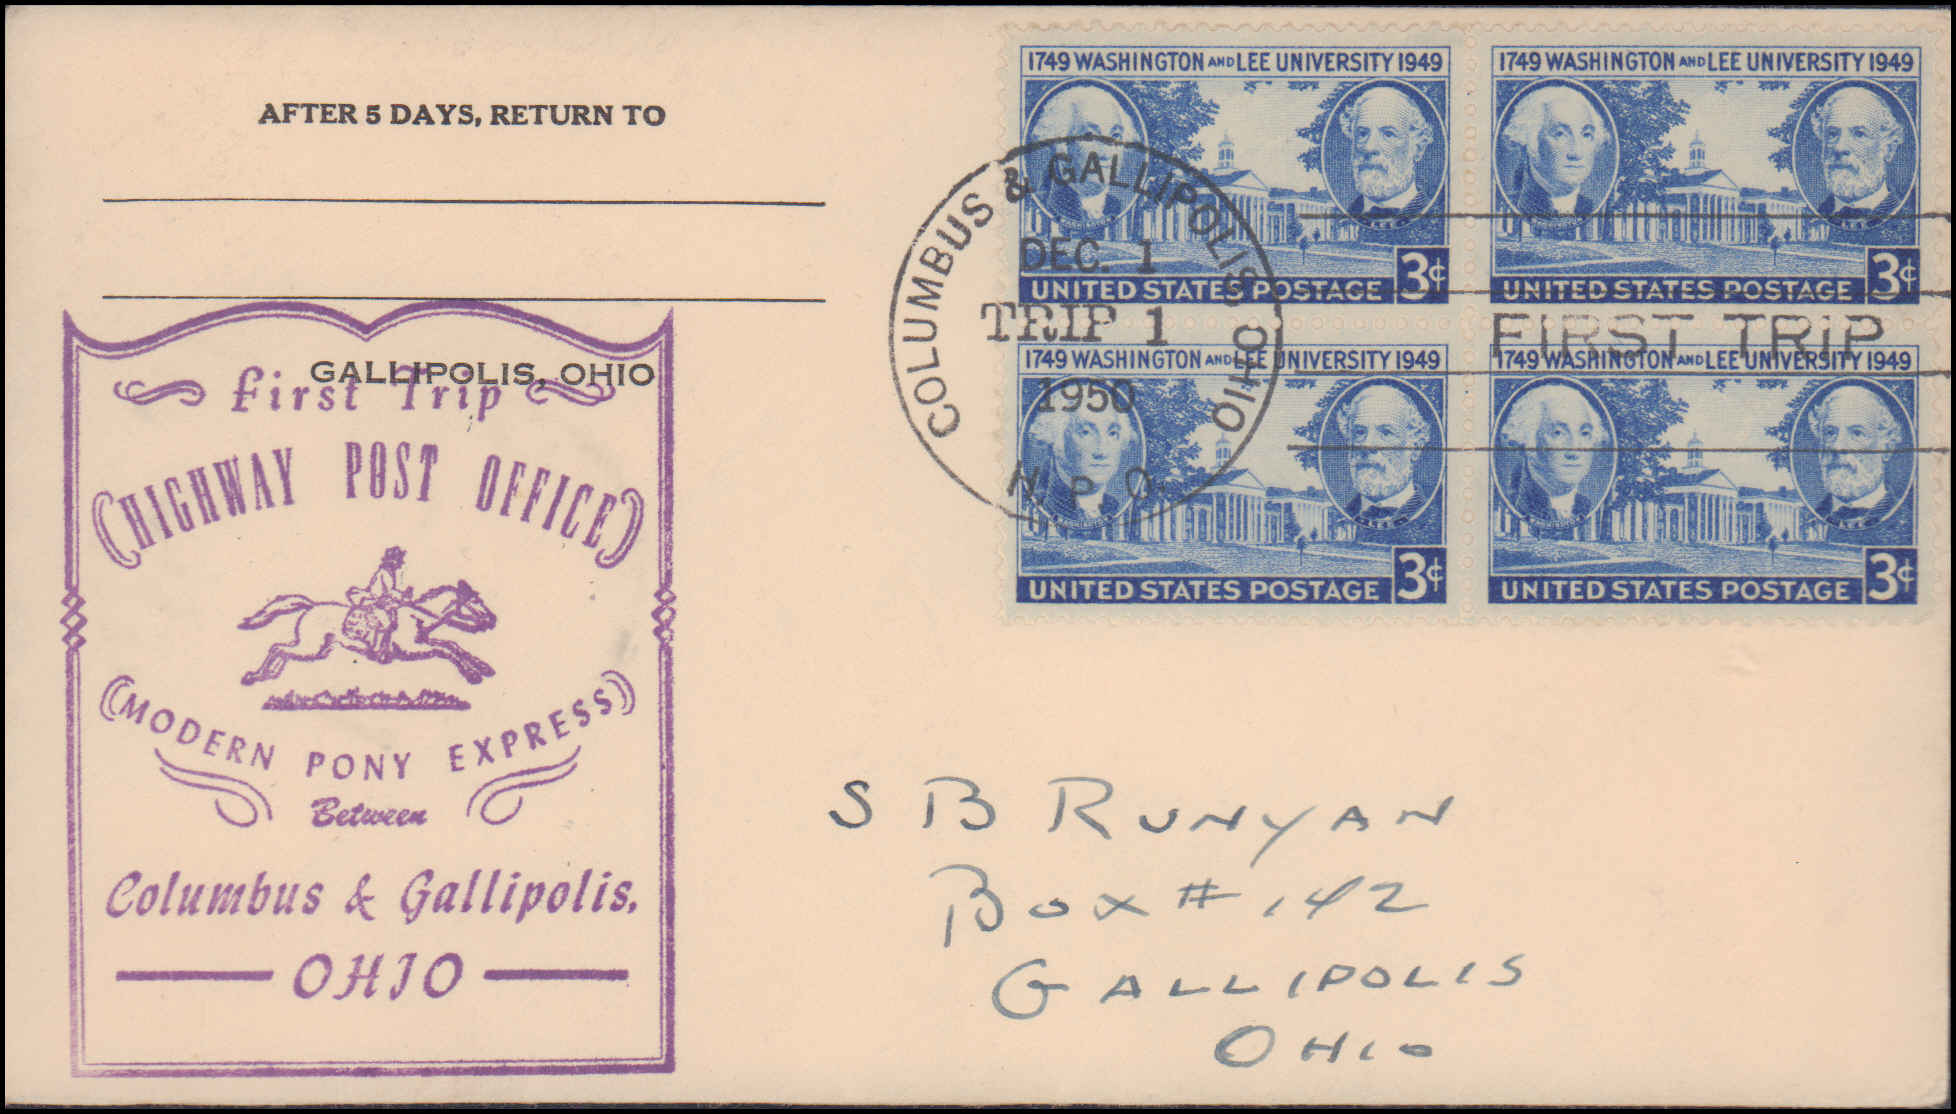 AFTER 5 DAYS, RETURN TO
GALLIPOLIS, OHIO
First Trip
HIGHWAY POST OFFICE
MODERN PONY EXPRESS
Between
Columbus & Gallipolis,
OHIO
1749 WASHINGTON AND LEE UNIVERSITY 1949
UNITED STATES POSTAGE 3¢
1749 WASHINGTON AND LEE UNIVERSITY 1949
UNITED STATES POSTAGE 3¢
1749 WASHINGTON AND LEE UNIVERSITY 1949
UNITED STATES POSTAGE 3¢
1749 WASHINGTON AND LEE UNIVERSITY 1949
UNITED STATES POSTAGE 3¢
COLUMBUS & GALLIPOLIS OHIO
DEC. 1
TRIP 1
1950
H. P. O.
FIRST TRIP
S B RUNYAN
BOX # 142
GALLIPOLIS
OHIO